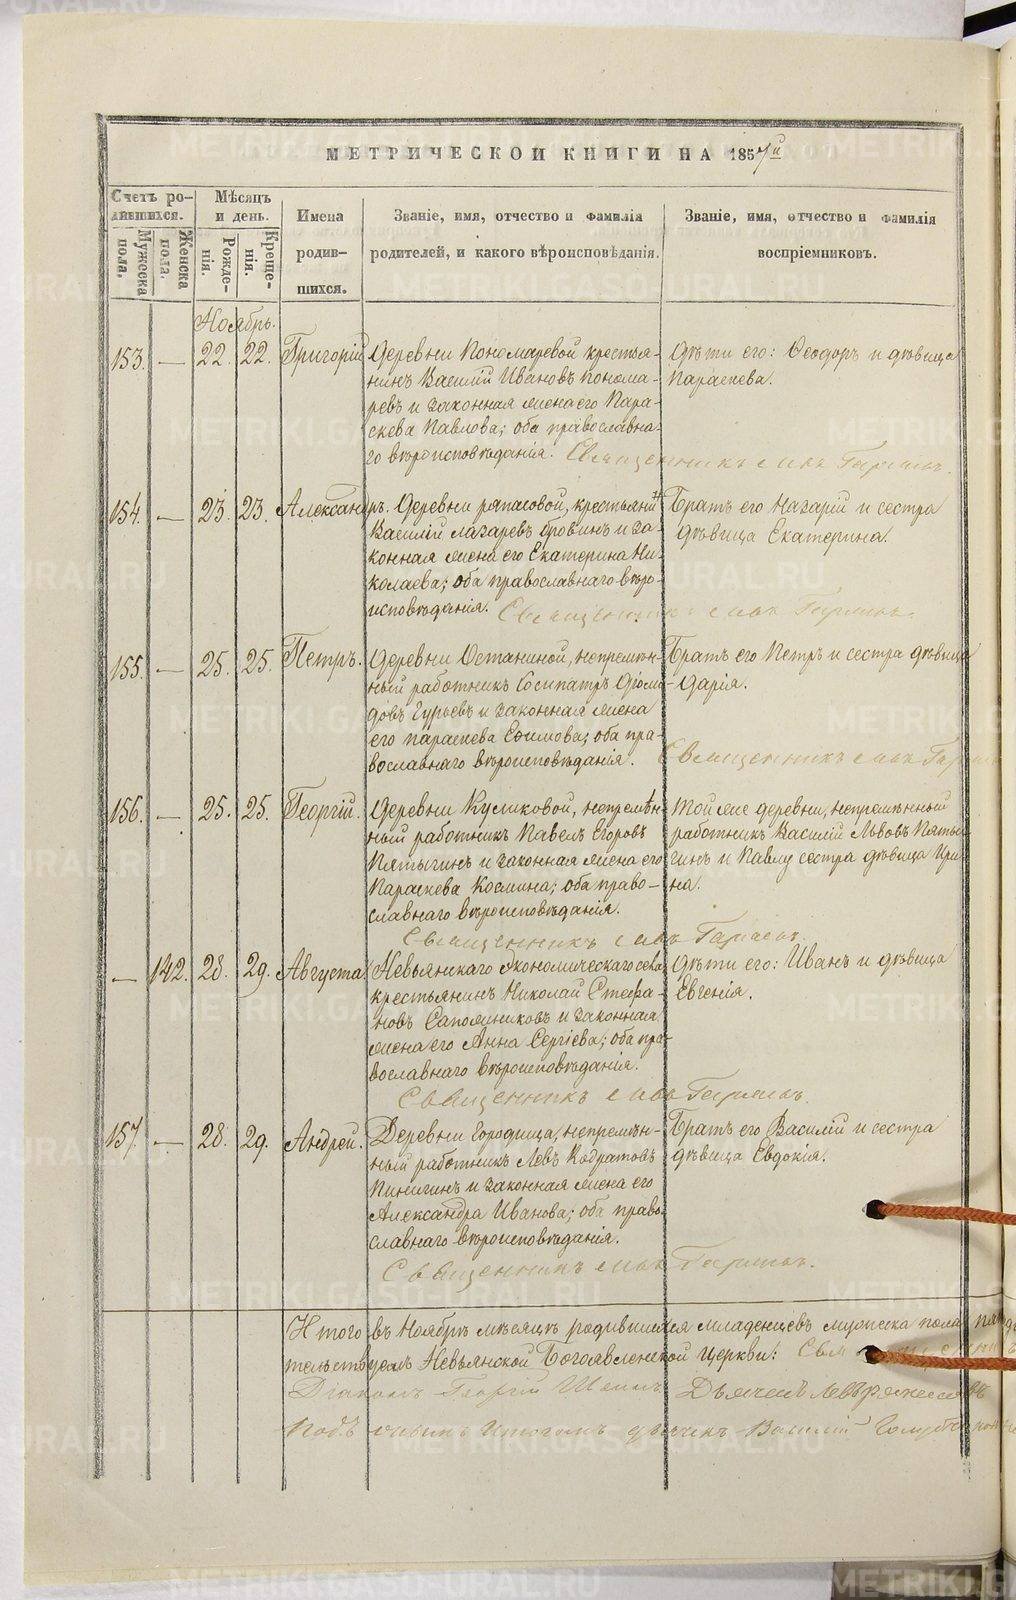 МЕТРИЧЕСКОЙ КНИГИ НА 1857й
Счетъ ро-
дившихся.
Мужеска
пола.
Женска
пола.
Мѣсяцъ
и день.
Рожде-
нія.
Креще-
нія.
Имена
родив-
шихся.
Званіе, имя, отчество и фамилія
родителей, и какого вѣроисповѣданія.
Званіе, имя, отчество и фамилія
воспріемниковъ.
Ноябрь.
153. — 22. 22. Григорій
Деревни Пономаревой крестья-
нинъ Василій Ивановъ Понома-
ревъ и законная жена его Пара-
скева Павлова; оба православна-
го вѣроисповѣданія.
Дѣти его: Ѳеодоръ и дѣвица
Параскева.
Священникъ
154. — 23. 23. Александръ.
Деревни Ряпасовой, крестьянинъ
Василій Лазаревъ и за-
конная жена его Екатерина Ни-
колаева; оба православнаго вѣро-
исповѣданія.
Братъ его Назарій и сестра
дѣвица Екатерина.
Священникъ
155. — 25. 25. Петръ.
Деревни Останиной, непремѣн-
ный работникъ Сосипатръ Діоми-
довъ Гурьевъ и законная жена
его Параскева Ефимова; оба пра-
вославнаго вѣроисповѣданія.
Братъ его Петръ и сестра дѣвица
Дарія.
Священникъ
156. — 25. 25. Георгій.
Деревни Куликовой, непремѣн-
ный работникъ Павелъ Егоровъ
Пятыгинъ и законная жена его
Параскева Космина; оба право-
славнаго вѣроисповѣданія.
Той же деревни, непремѣнный
работникъ Василій Львовъ Пяты-
гинъ и Павлу сестра дѣвица Ири-
на.
Священникъ
— 142. 28. 29. Августа
Невьянскаго Экономическаго села
крестьянинъ Николай Стефа-
новъ Сапожниковъ и законная
жена его Анна Сергіева; оба пра-
вославнаго вѣроисповѣданія.
Дѣти его: Иванъ и дѣвица
Евгенія.
Священникъ
157. — 28. 29. Андрей.
Деревни Городища, непремѣн-
ный работникъ Левъ Кодратовъ
Пинигинъ и законная жена его
Александра Иванова; оба право-
славнаго вѣроисповѣданія.
Братъ его Василій и сестра
дѣвица Евдокія.
Священникъ
Итого въ Ноябрѣ мѣсяцѣ родившихся младенцевъ мужеска пола
Невьянской Богоявленской церкви:
Діаконъ Георгій
Василій
METRIKI.GASO-URAL.RU